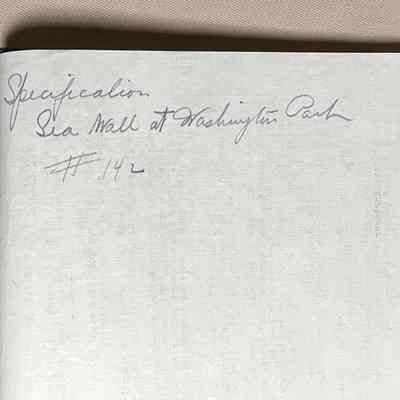 Specification
Sea Wall at Washington Park
# 142